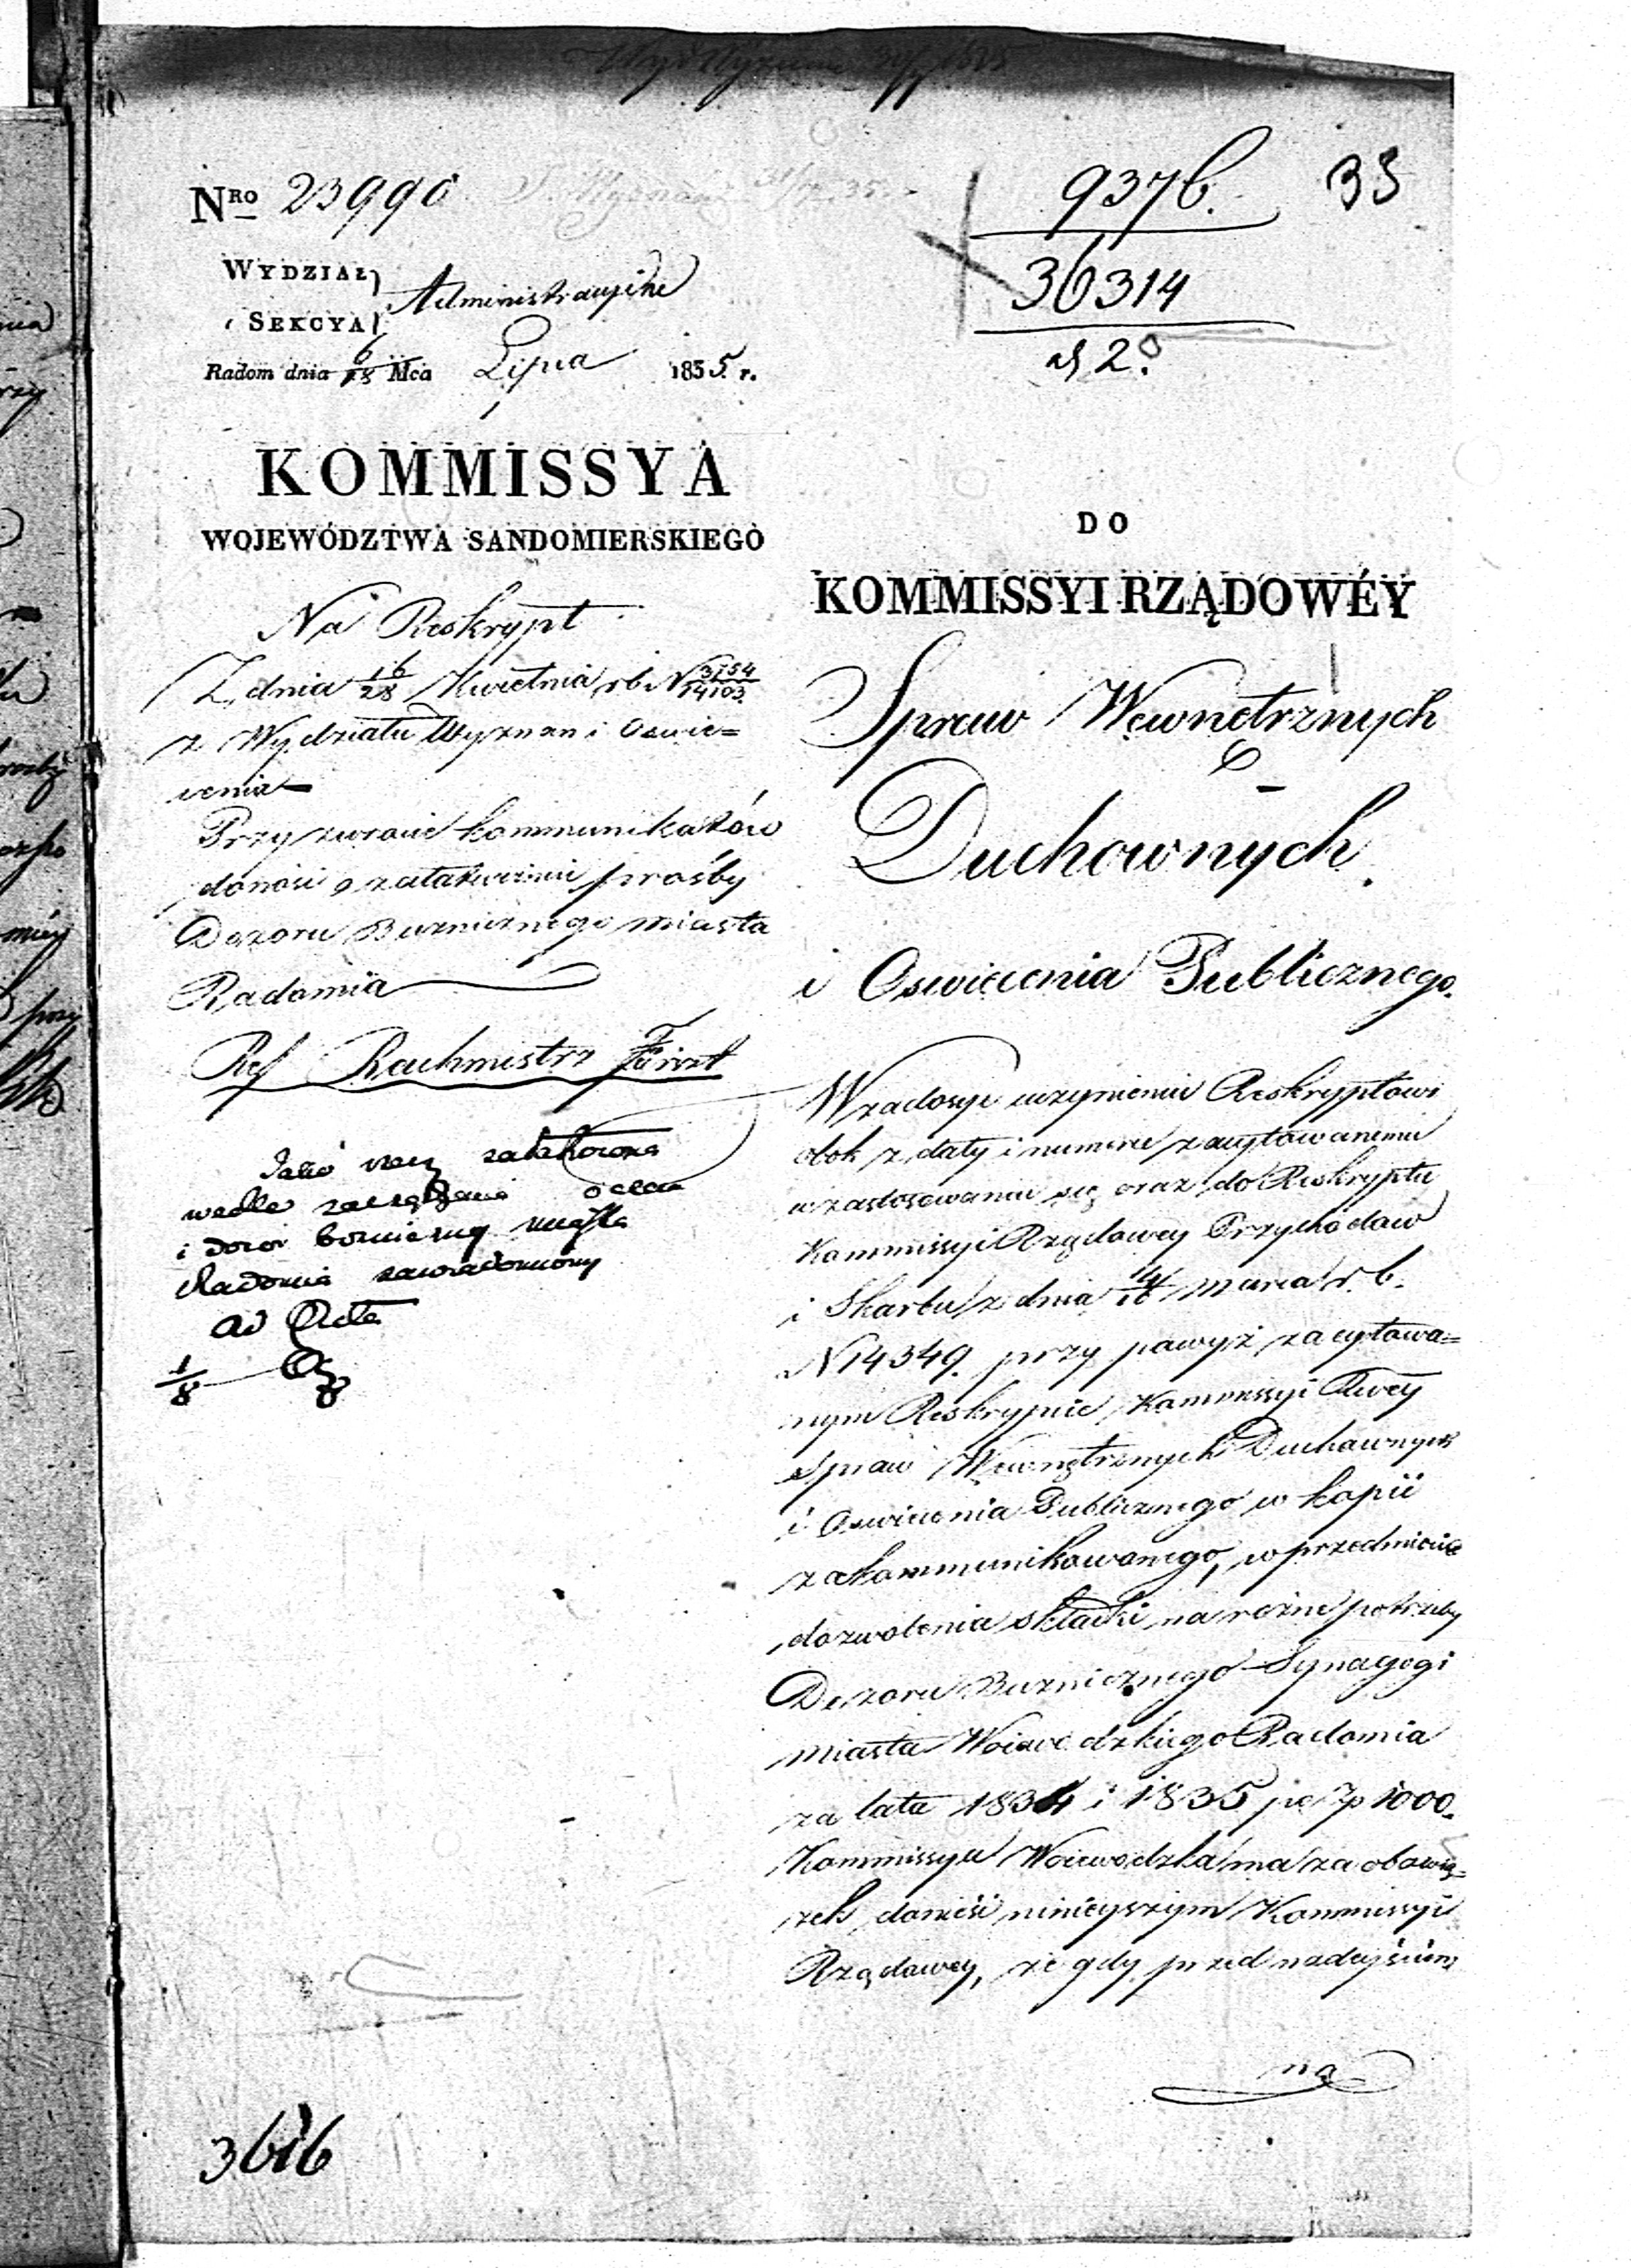 Nro 23990
9376.
33
36314
WYDZIAŁ
SEKCYA
Administracyjny
Radom dnia 6/18 Mca Lipca 1835. r.
KOMMISSYA
WOJEWÓDZTWA SANDOMIERSKIEGO
Na Reskrypt
Z dnia 16/28 Kwietnia r b. N 3754/14103
z Wydziału Wyznan i Oswie=
cenia
Przy zwrocie kommunikatów
donosi o załatwieniu prosby
Dozoru Buznicznego miasta
Radomia
Ref Rachmistrz
wedle
i dozor bozniczny miasta
Radomia zawiadomiony
ad Acta
1/8
3616
DO
KOMMISSYI RZĄDOWÉY
Spraw Wewnetrznych
Duchownych
i Oswiecenia Publicznego.
W zadosyc uczynieniu Reskryptowi
obok z daty i numeru zacytowanemu
w zastosowaniu się oraz do Reskryptu
Kommissyi Rządowey Przychodow
i Skarbu z dnia 4/16 Marca r. b.
N 14349. przy powyż zacytowa=
nym Reskrypcie Kommissyi Rwéy
Spraw Wewnętrznych Duchownych
i Oswiecenia Publicznego w kopii
zakommunikowanego, w przedmiocie
dozwolenia składki na rożne potrzeby
Dozoru Buznicznego Synagogi
miasta Woiewodzkiego Radomia
za lata 1834 i 1835 po Zp 1000.
Kommissya Woiewodzka ma za obowią=
zek donieść ninieyszym Kommissyi
Rządowey, że gdy przed nadeyściem
na